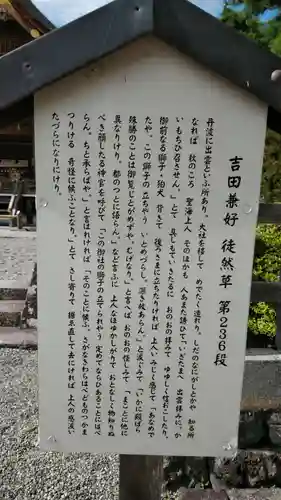 吉田兼好 徒然草 第236段
丹波に出雲といふ所あり。大社を移して めでたく造れり。しだのなにがしとかや 知る所
なれば 秋のころ 聖海上人 そのほかも 人あまた誘ひて、「いざたまへ 出雲拝みに。か
いもちひ召させん。」とて 具しもていきたるに おのおの拝みて ゆゆしく信おこしたり。
御前なる獅子・狛犬 背きて 後ろさまに立ちたりければ 上人いみじく感じて「あなめで
たや。この獅子の立ちやう いとめづらし。深き故あらん。」と涙ぐみて「いかに殿ばら
殊勝のことは御覧じとがめずや。むげなり。」と言へば おのおの怪しみて 「まことに他に
異なりけり。都のつとに語らん。」など言ふに 上人なほゆかしがりて おとなしく物知りぬ
べき顔したる神官を呼びて「この御社の獅子の立てられやう 定めてならひあることにはべ
らん。ちと承らばや。」と言はれければ「そのことに候ふ。さがなきわらはべどものつかま
つりける 奇怪に候ふことなり。」とて さし寄りて 据ゑ直して去にければ 上人の感涙い
たづらになりにけり。